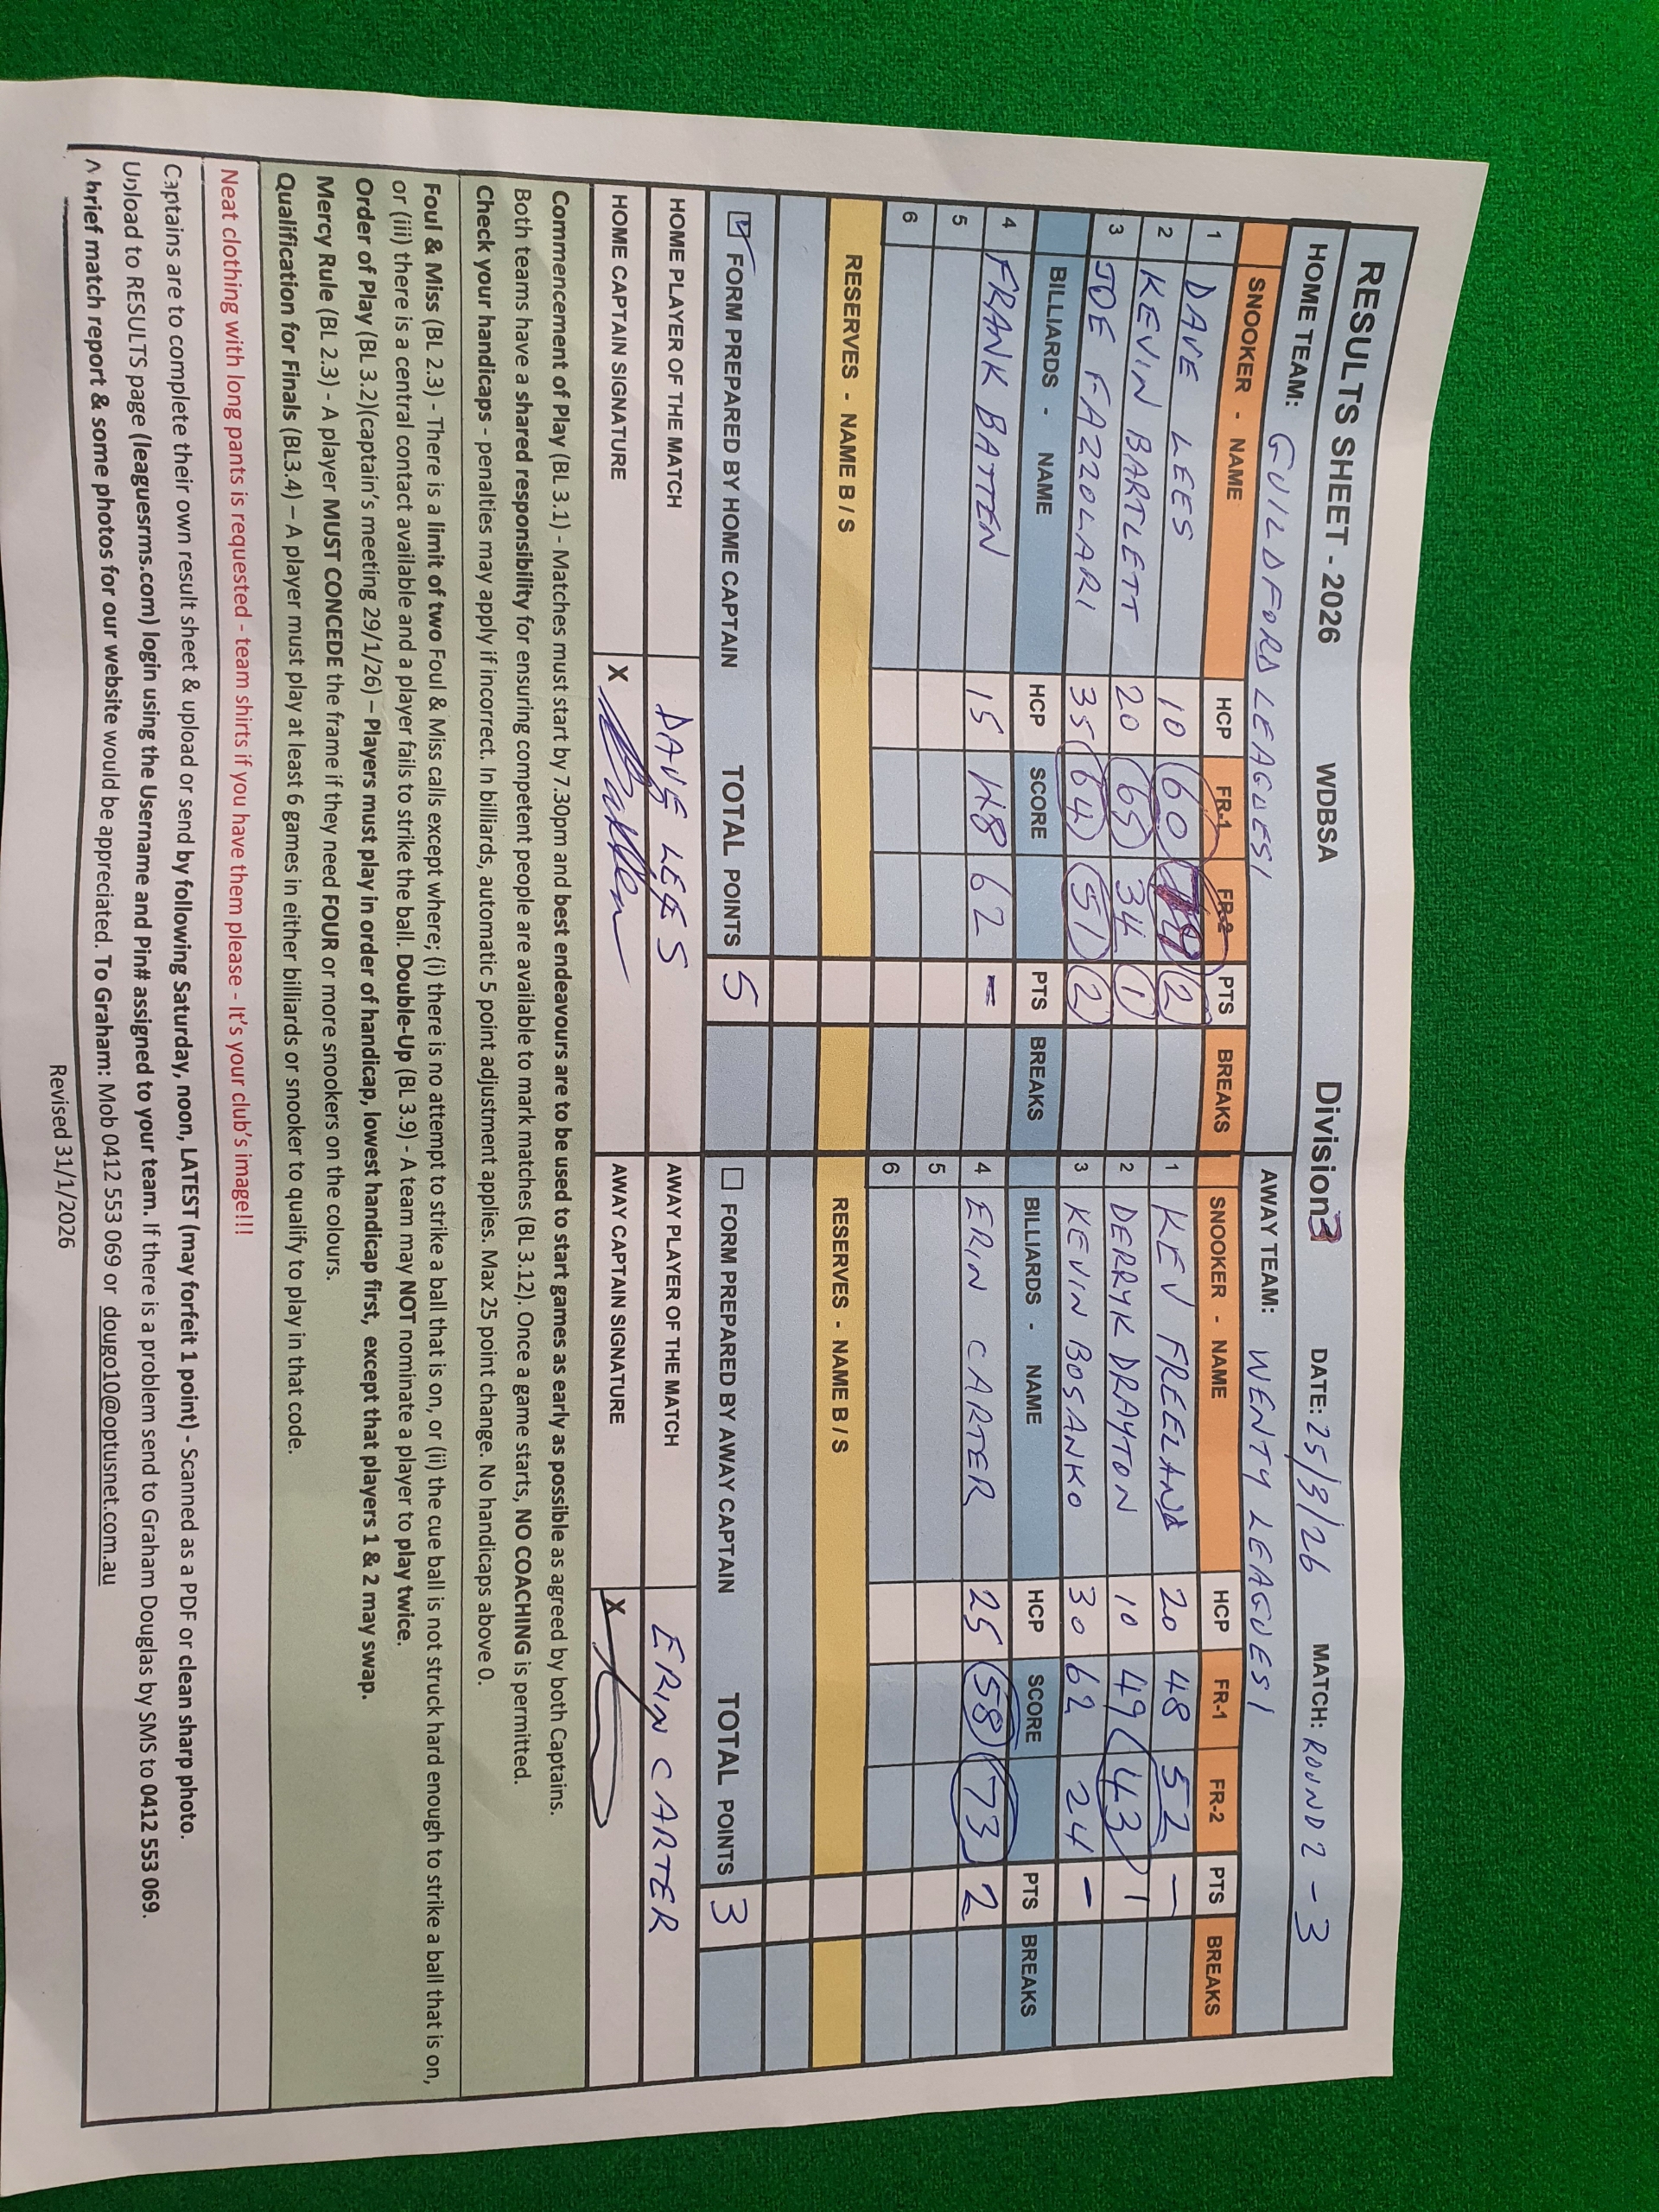 RESULTS SHEET - 2026 WDBSA Division 3 DATE: 25/3/26 MATCH: ROUND 2 - 3
HOME TEAM: GUILDFORD LEAGUES 1 AWAY TEAM: WENTY LEAGUES 1
SNOOKER - NAME HCP FR-1 FR-2 PTS BREAKS SNOOKER - NAME HCP FR-1 FR-2 PTS BREAKS
1 DAVE LEES 10 60 2 1 KEV FREELAND 20 48 52 -
2 KEVIN BARTLETT 20 65 34 1 2 DERRYK DRAYTON 10 49 43 1
3 JOE FAZZOLARI 35 64 51 2 3 KEVIN BOSANKO 30 62 24 -
BILLIARDS - NAME HCP SCORE PTS BREAKS BILLIARDS - NAME HCP SCORE PTS BREAKS
4 FRANK BATTEN 15 48 62 - 4 ERIN CARTER 25 58 73 2
5 5
6 6
RESERVES - NAME B / S RESERVES - NAME B / S
FORM PREPARED BY HOME CAPTAIN TOTAL POINTS 5 FORM PREPARED BY AWAY CAPTAIN TOTAL POINTS 3
HOME PLAYER OF THE MATCH DAVE LEES AWAY PLAYER OF THE MATCH ERIN CARTER
HOME CAPTAIN SIGNATURE X AWAY CAPTAIN SIGNATURE X
Commencement of Play (BL 3.1) - Matches must start by 7.30pm and best endeavours are to be used to start games as early as possible as agreed by both Captains.
Both teams have a shared responsibility for ensuring competent people are available to mark matches (BL 3.12). Once a game starts, NO COACHING is permitted.
Check your handicaps - penalties may apply if incorrect. In billiards, automatic 5 point adjustment applies. Max 25 point change. No handicaps above 0.
Foul & Miss (BL 2.3) - There is a limit of two Foul & Miss calls except where; (i) there is no attempt to strike a ball that is on, or (ii) the cue ball is not struck hard enough to strike a ball that is on,
or (iii) there is a central contact available and a player fails to strike the ball. Double-Up (BL 3.9) - A team may NOT nominate a player to play twice.
Order of Play (BL 3.2)(captain's meeting 29/1/26) – Players must play in order of handicap, lowest handicap first, except that players 1 & 2 may swap.
Mercy Rule (BL 2.3) - A player MUST CONCEDE the frame if they need FOUR or more snookers on the colours.
Qualification for Finals (BL3.4) – A player must play at least 6 games in either billiards or snooker to qualify to play in that code.
Neat clothing with long pants is requested - team shirts if you have them please - It's your club's image!!!
Captains are to complete their own result sheet & upload or send by following Saturday, noon, LATEST (may forfeit 1 point) - Scanned as a PDF or clean sharp photo.
Upload to RESULTS page (leaguesrms.com) login using the Username and Pin# assigned to your team. If there is a problem send to Graham Douglas by SMS to 0412 553 069.
A brief match report & some photos for our website would be appreciated. To Graham: Mob 0412 553 069 or dougo10@optusnet.com.au
Revised 31/1/2026